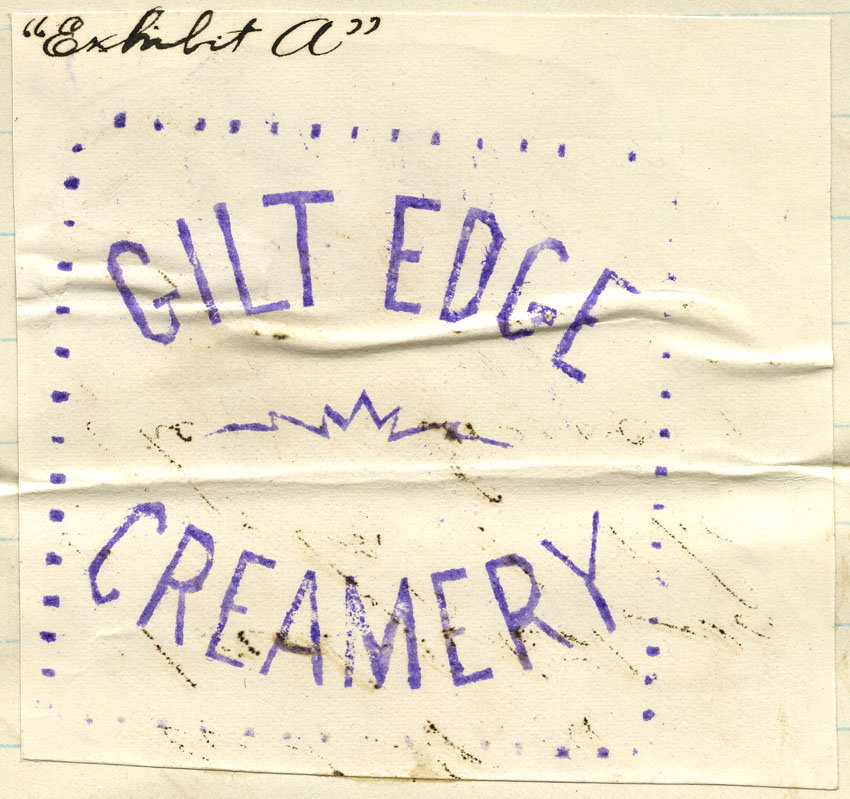 “Exhibit A”
GILT EDGE
CREAMERY